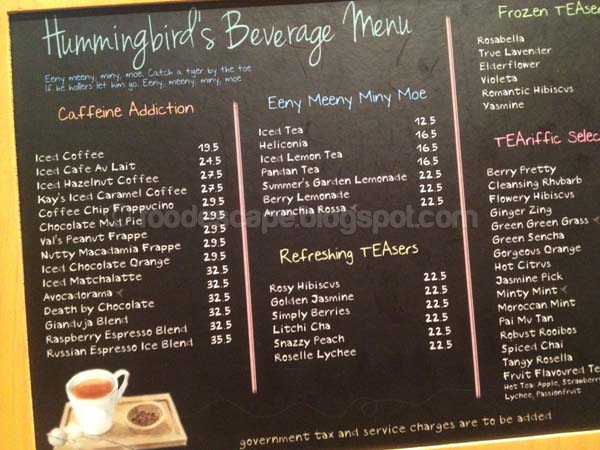 Hummingbird's Beverage Menu
Eeny meeny, miny, moe. Catch a tiger by the toe
If he hollers let him go. Eeny, meeny, miny, moe
Caffeine Addiction
Iced Coffee 19.5
Iced Cafe Au Lait 24.5
Iced Hazelnut Coffee 27.5
Kay's Iced Caramel Coffee 27.5
Coffee Chip Frappucino 29.5
Chocolate Mud Pie 29.5
Val's Peanut Frappe 29.5
Nutty Macadamia Frappe 29.5
Iced Chocolate Orange 29.5
Iced Matchalatte 32.5
Avocadorama 32.5
Death by Chocolate 32.5
Gianduja Blend 32.5
Raspberry Espresso Blend 32.5
Russian Espresso Ice Blend 35.5
Eeny Meeny Miny Moe
Iced Tea 12.5
Heliconia 16.5
Iced Lemon Tea 16.5
Pandan Tea 16.5
Summer's Garden Lemonade 22.5
Berry Lemonade 22.5
Arranchia Rossa 22.5
Refreshing TEAsers
Rosy Hibiscus 22.5
Golden Jasmine 22.5
Simply Berries 22.5
Litchi Cha 22.5
Snazzy Peach 22.5
Roselle Lychee 22.5
Frozen TEAse
Rosabella
True Lavender
Elderflower
Violeta
Romantic Hibiscus
Yasmine
TEAriffic Selec
Berry Pretty
Cleansing Rhubarb
Flowery Hibiscus
Ginger Zing
Green Green Grass
Green Sencha
Gorgeous Orange
Hot Citrus
Jasmine Pick
Minty Mint
Moroccan Mint
Pai Mu Tan
Robust Rooibos
Spiced Chai
Tangy Rosella
Fruit Flavoured Te
Hot Tea: Apple, Strawberry
Lychee, Passionfruit
government tax and service charges are to be added